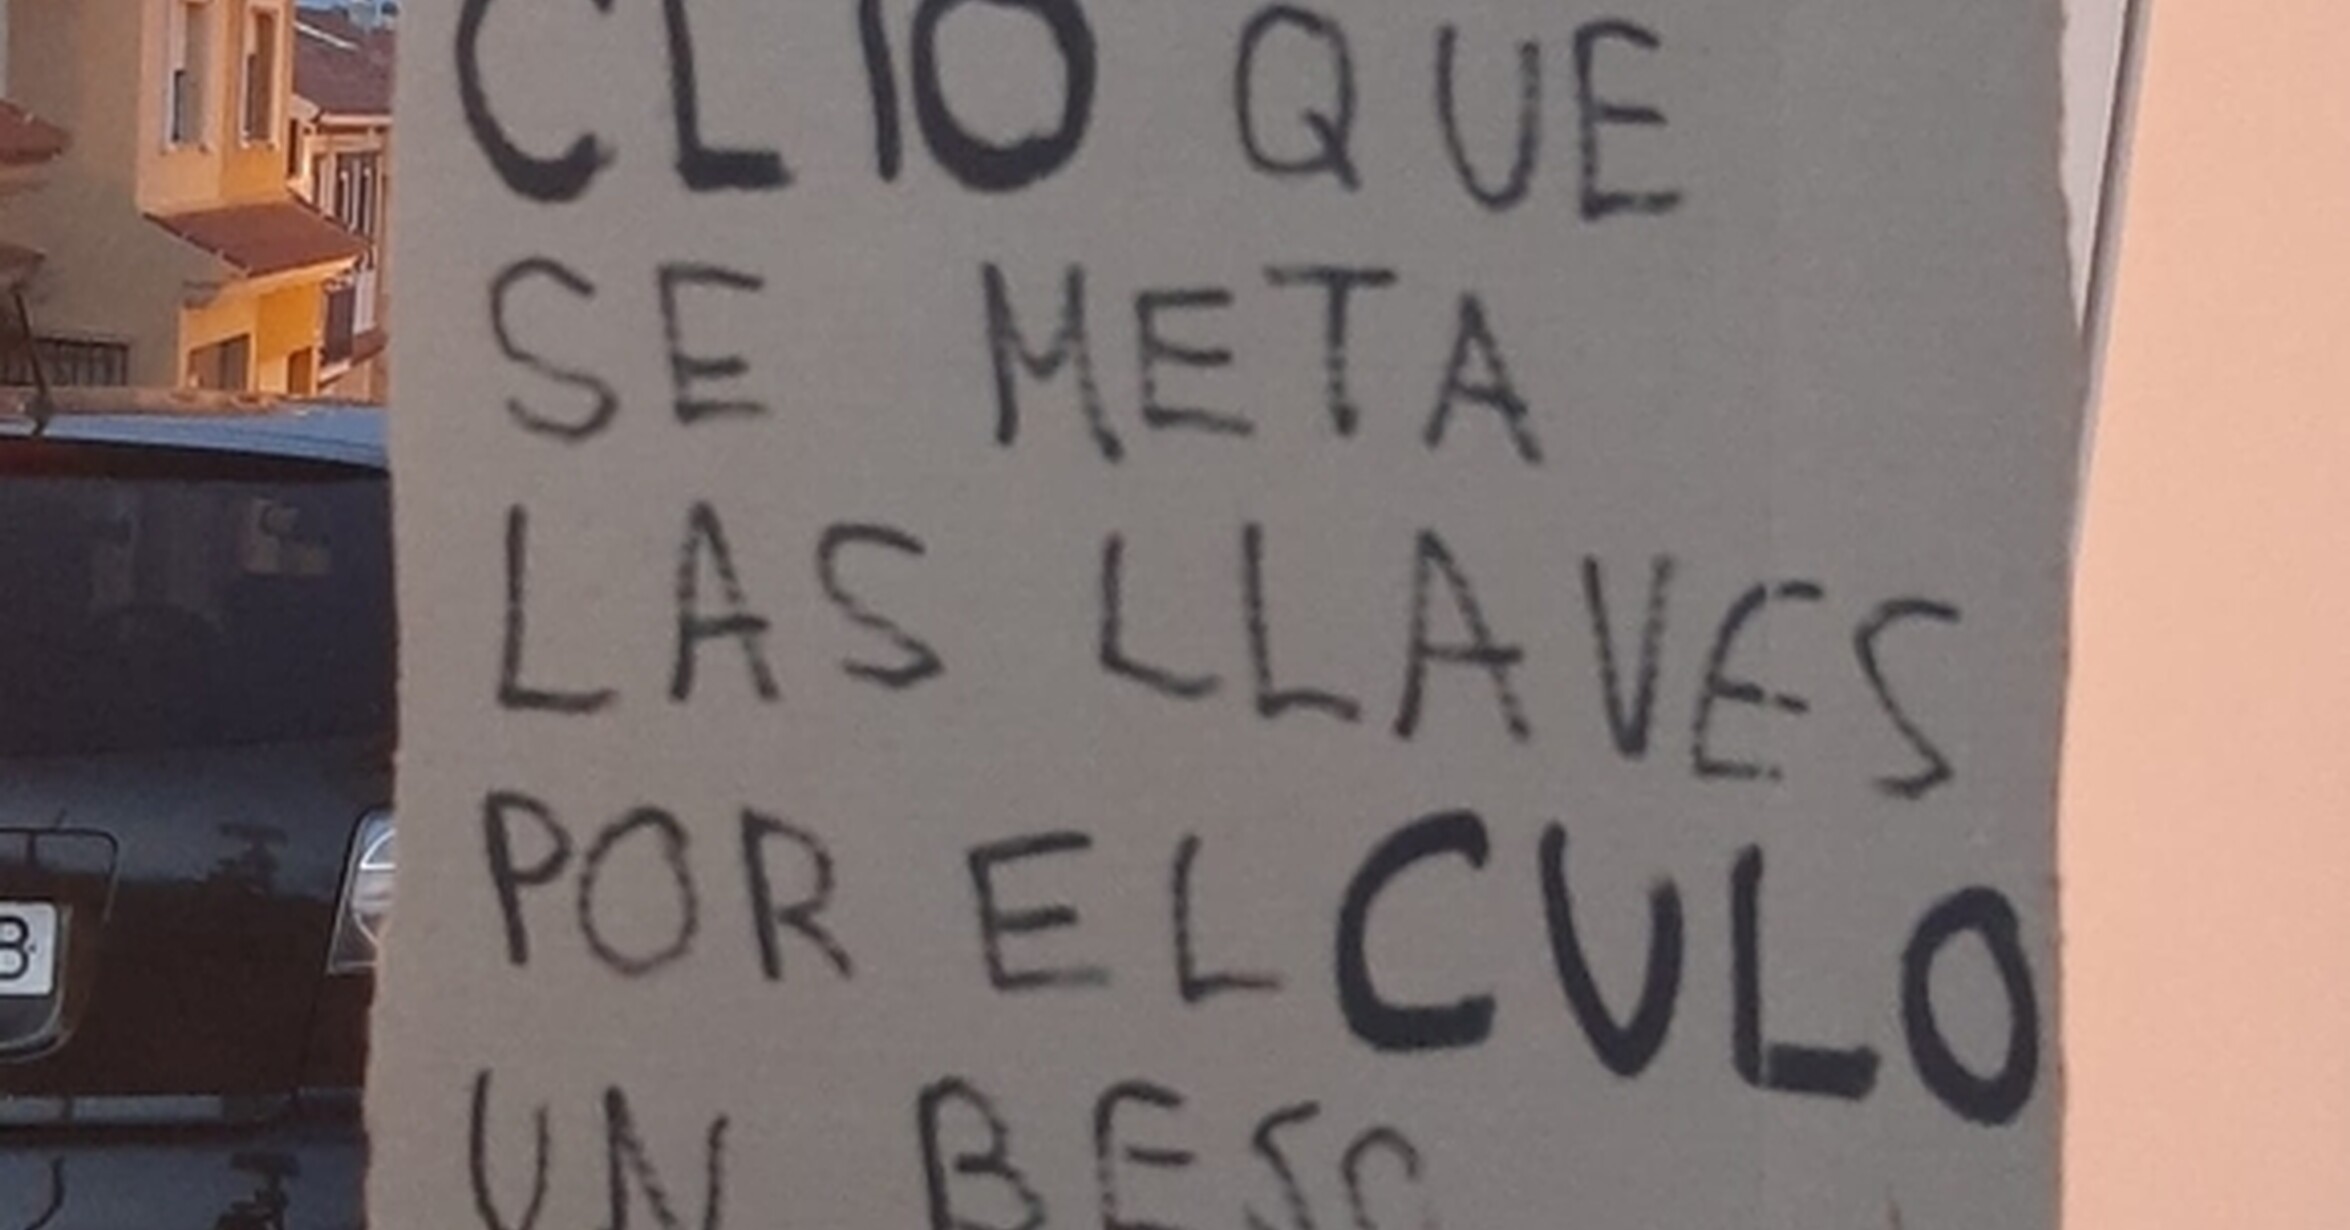 CLIO QUE
SE META
LAS LLAVES
POR EL CULO
UN BESO
B